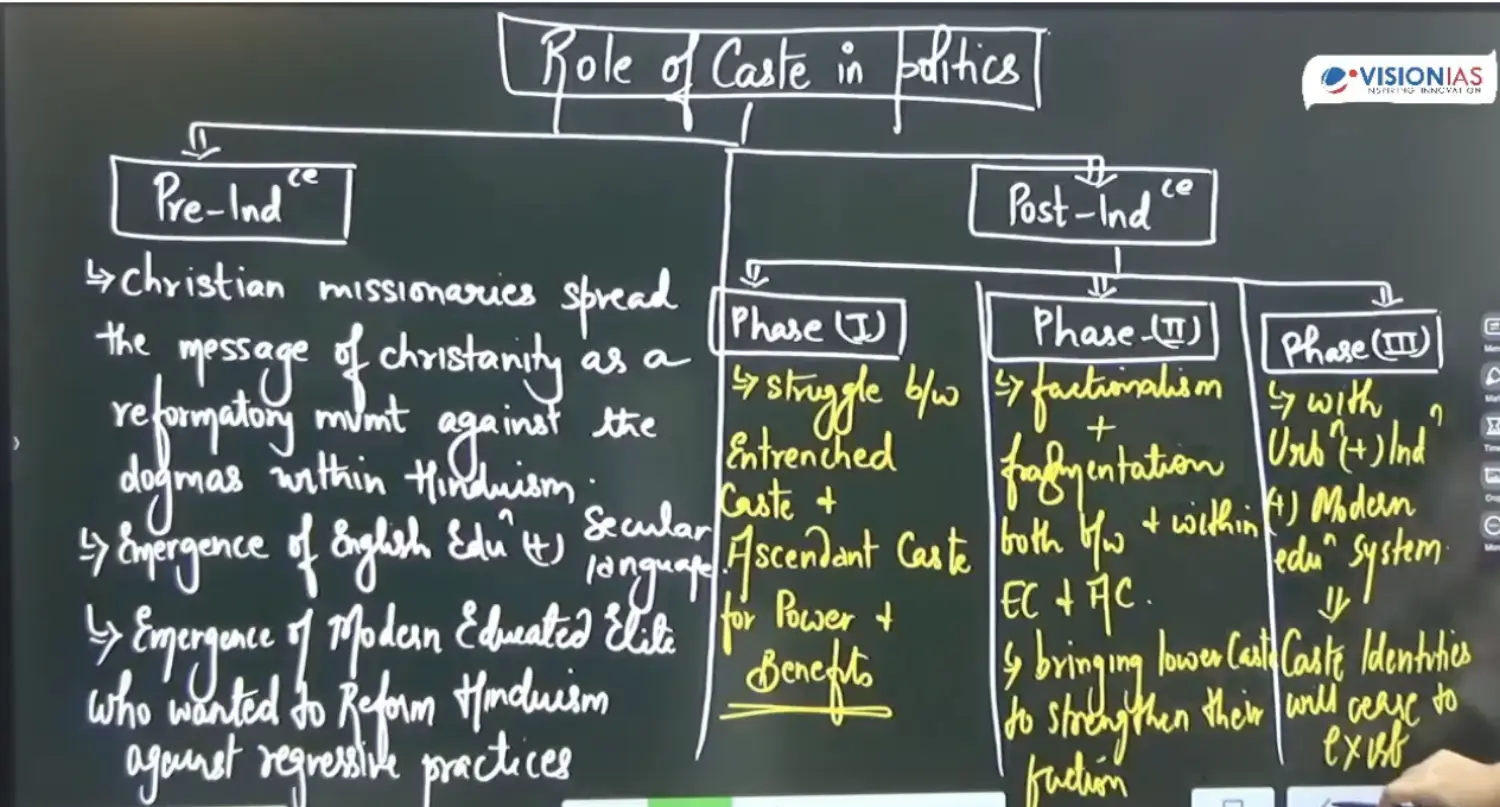 Role of Caste in politics
VISIONIAS
INSPIRING INNOVATION
Pre-Ind^ce
↳ Christian missionaries spread
the message of christanity as a
reformatory mvmt against the
dogmas within Hinduism.
↳ Emergence of English Edu^n (+) Secular
language.
↳ Emergence of Modern Educated Elite
who wanted to Reform Hinduism
against regressive practices
Post-Ind^ce
Phase (I)
↳ struggle b/w
Entrenched
Caste +
Ascendant Caste
for Power +
Benefits
Phase-(II)
↳ factionalism
+
fragmentation
both b/w + within
EC + AC.
↳ bringing lower Caste
to strengthen their
faction
Phase (III)
↳ with
Urb^n (+) Ind^n
(+) Modern
edu^n system.
⇓
Caste Identities
will cease to
exist